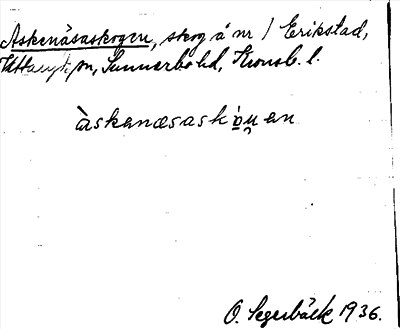 Askenäsaskogen, skog å nr 1 Erikstad,
Vittaryds sn, Sunnerbo hd, Kronob. l.
àskenæsaskòu̯en
O. Segerbäck 1936.